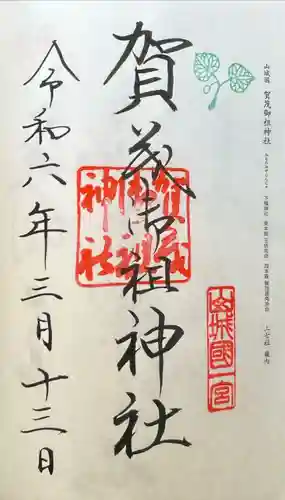 山城國 賀茂御祖神社
賀茂御祖神社
賀茂御祖神社
山城國一宮
令和六年三月十三日